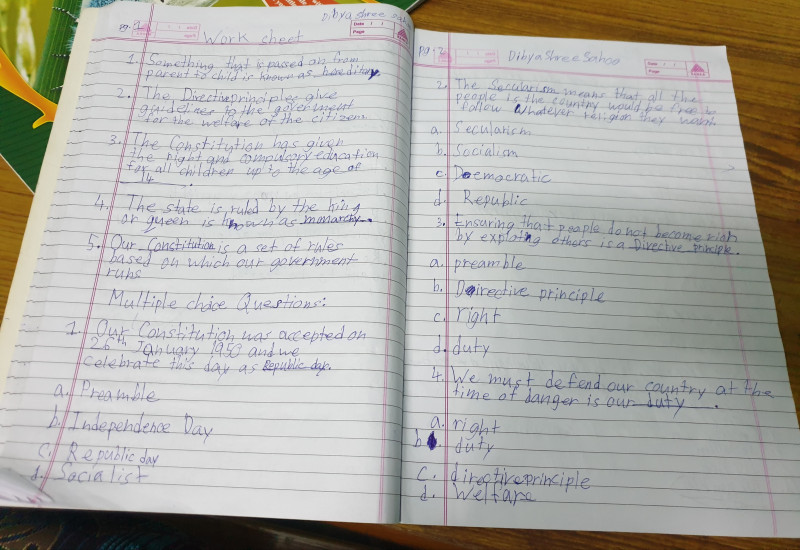 Dibya Shree Saho
pg-1
Date / /
Page
Work sheet
1. Something that is passed on from
parent to child is known as hereditary.
2. The Directive principles give
guidelines to the goverment
for the welfare of the citizen
3. The Constitution has given
the right and compulsory education
for all children up to the age of
14.
4. The state is ruled by the king
or queen is known as monarchy.
5. Our Constitution is a set of rules
based on which our government
runs
Multiple choice Questions:
1. Our Constitution was accepted on
26th January 1950 and we
celebrate this day as Republic day.
a. Preamble
b. Independence Day
c. Republic day
d. Socialist
pg-2
Dibya Shree Sahoo
Date / /
Page
2. The Secularism means that all the
people is the country would be free to
follow whatever religion they wish.
a. Secularism
b. Socialism
c. Doemocratic
d. Republic
3. Ensuring that people do not become rich
by exploting others is a Directive principle.
a. preamble
b. Directive principle
c. right
d. duty
4. We must defend our country at the
time of danger is our duty.
a. right
b. duty
c. directive principle
d. Welfare